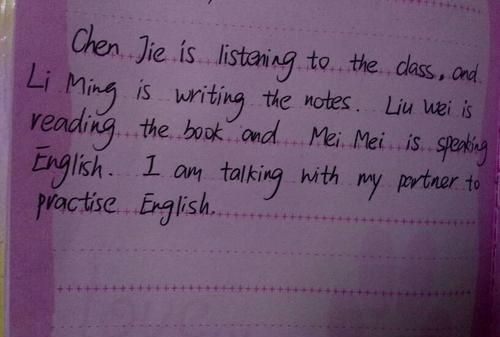 Chen Jie is listening to the class, and
Li Ming is writing the notes. Liu Wei is
reading the book and Mei Mei is speaking
English. I am talking with my partner to
practise English.